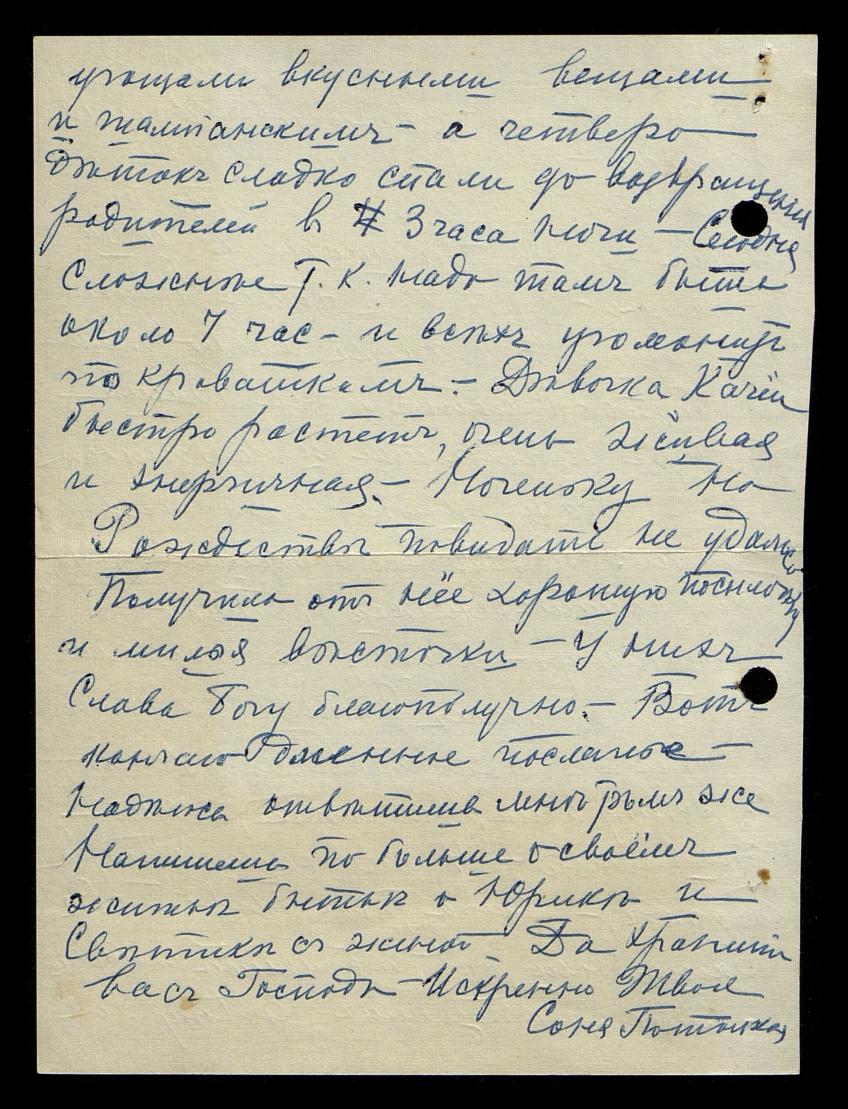 угощали вкусными вещами
и шампанскимъ – а четверо
дѣтокъ сладко спали до возвращения
родителей в 3 часа ночи – Сегодня
сложнѣе т.к. надо тамъ быть
около 7 час – и всѣхъ угомонить
по кроваткамъ. – Дѣвочка Катѣи
быстро растетъ, очень живая
и энергичная. – на
Рождествѣ повидать не удалось
Получила отъ неё хорошую посылочку
и милыя вѣсточки – У нихъ
Слава Богу благополучно. – Вотъ
кончаю длинное посланіе –
Надѣюсь отвѣтишь мнѣ тѣмъ же
Напишешь по больше о своёмъ
житьѣ бытьѣ о Юрикѣ и
Святикѣ съ женой – Да хранитъ
васъ Господь – Искренно Твоя
Соня